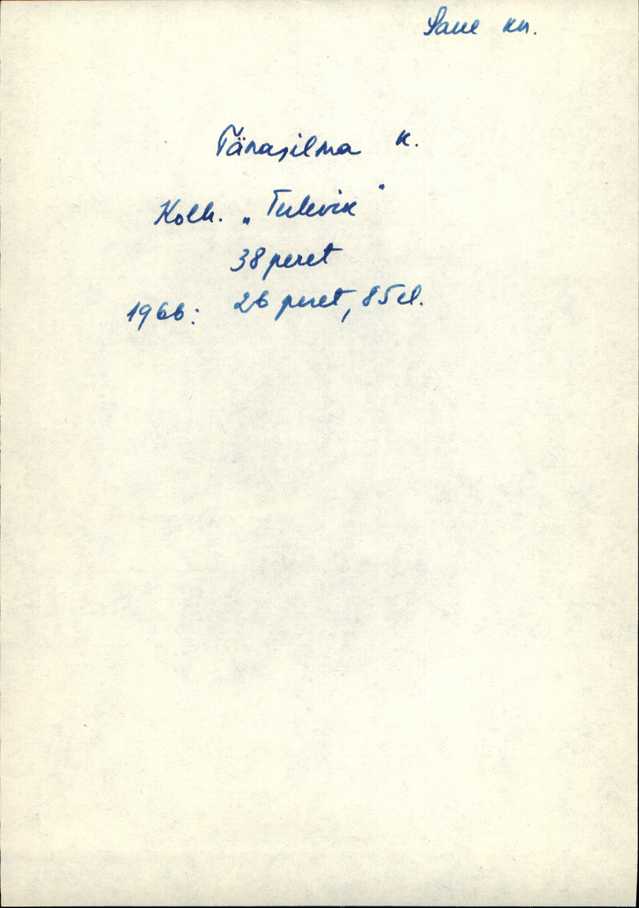 Saue kn.
Tänasilma k.
Kolh. „Tulevik"
38 peret
1966: 26 peret, 85 el.